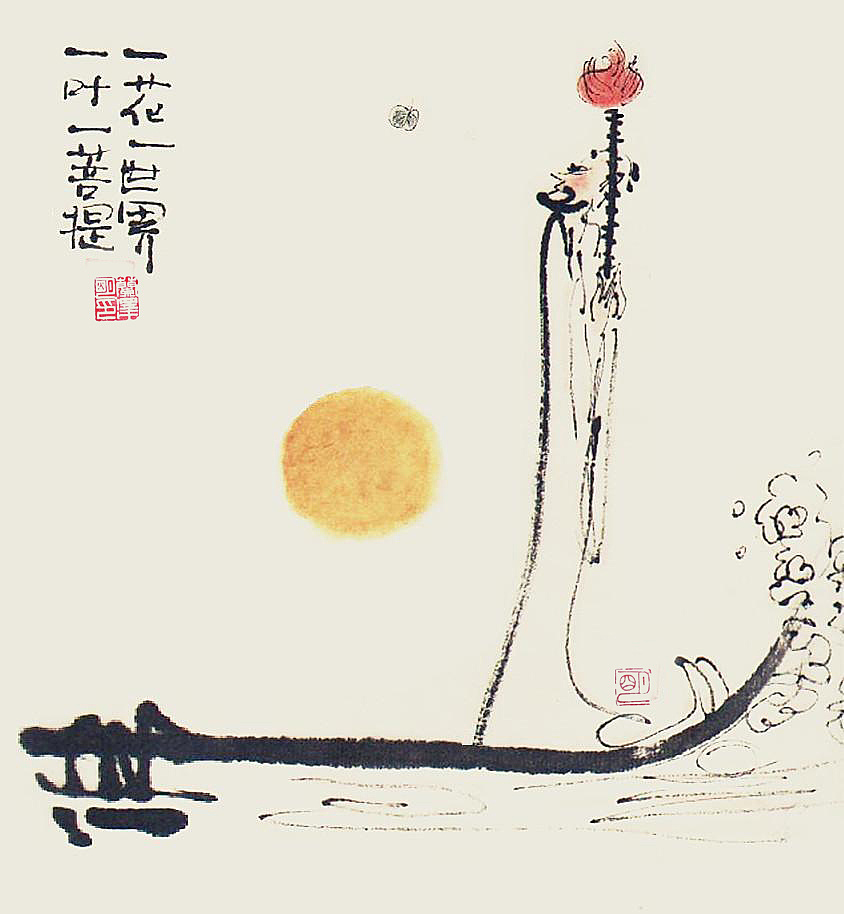 一花一世界
一叶一菩提